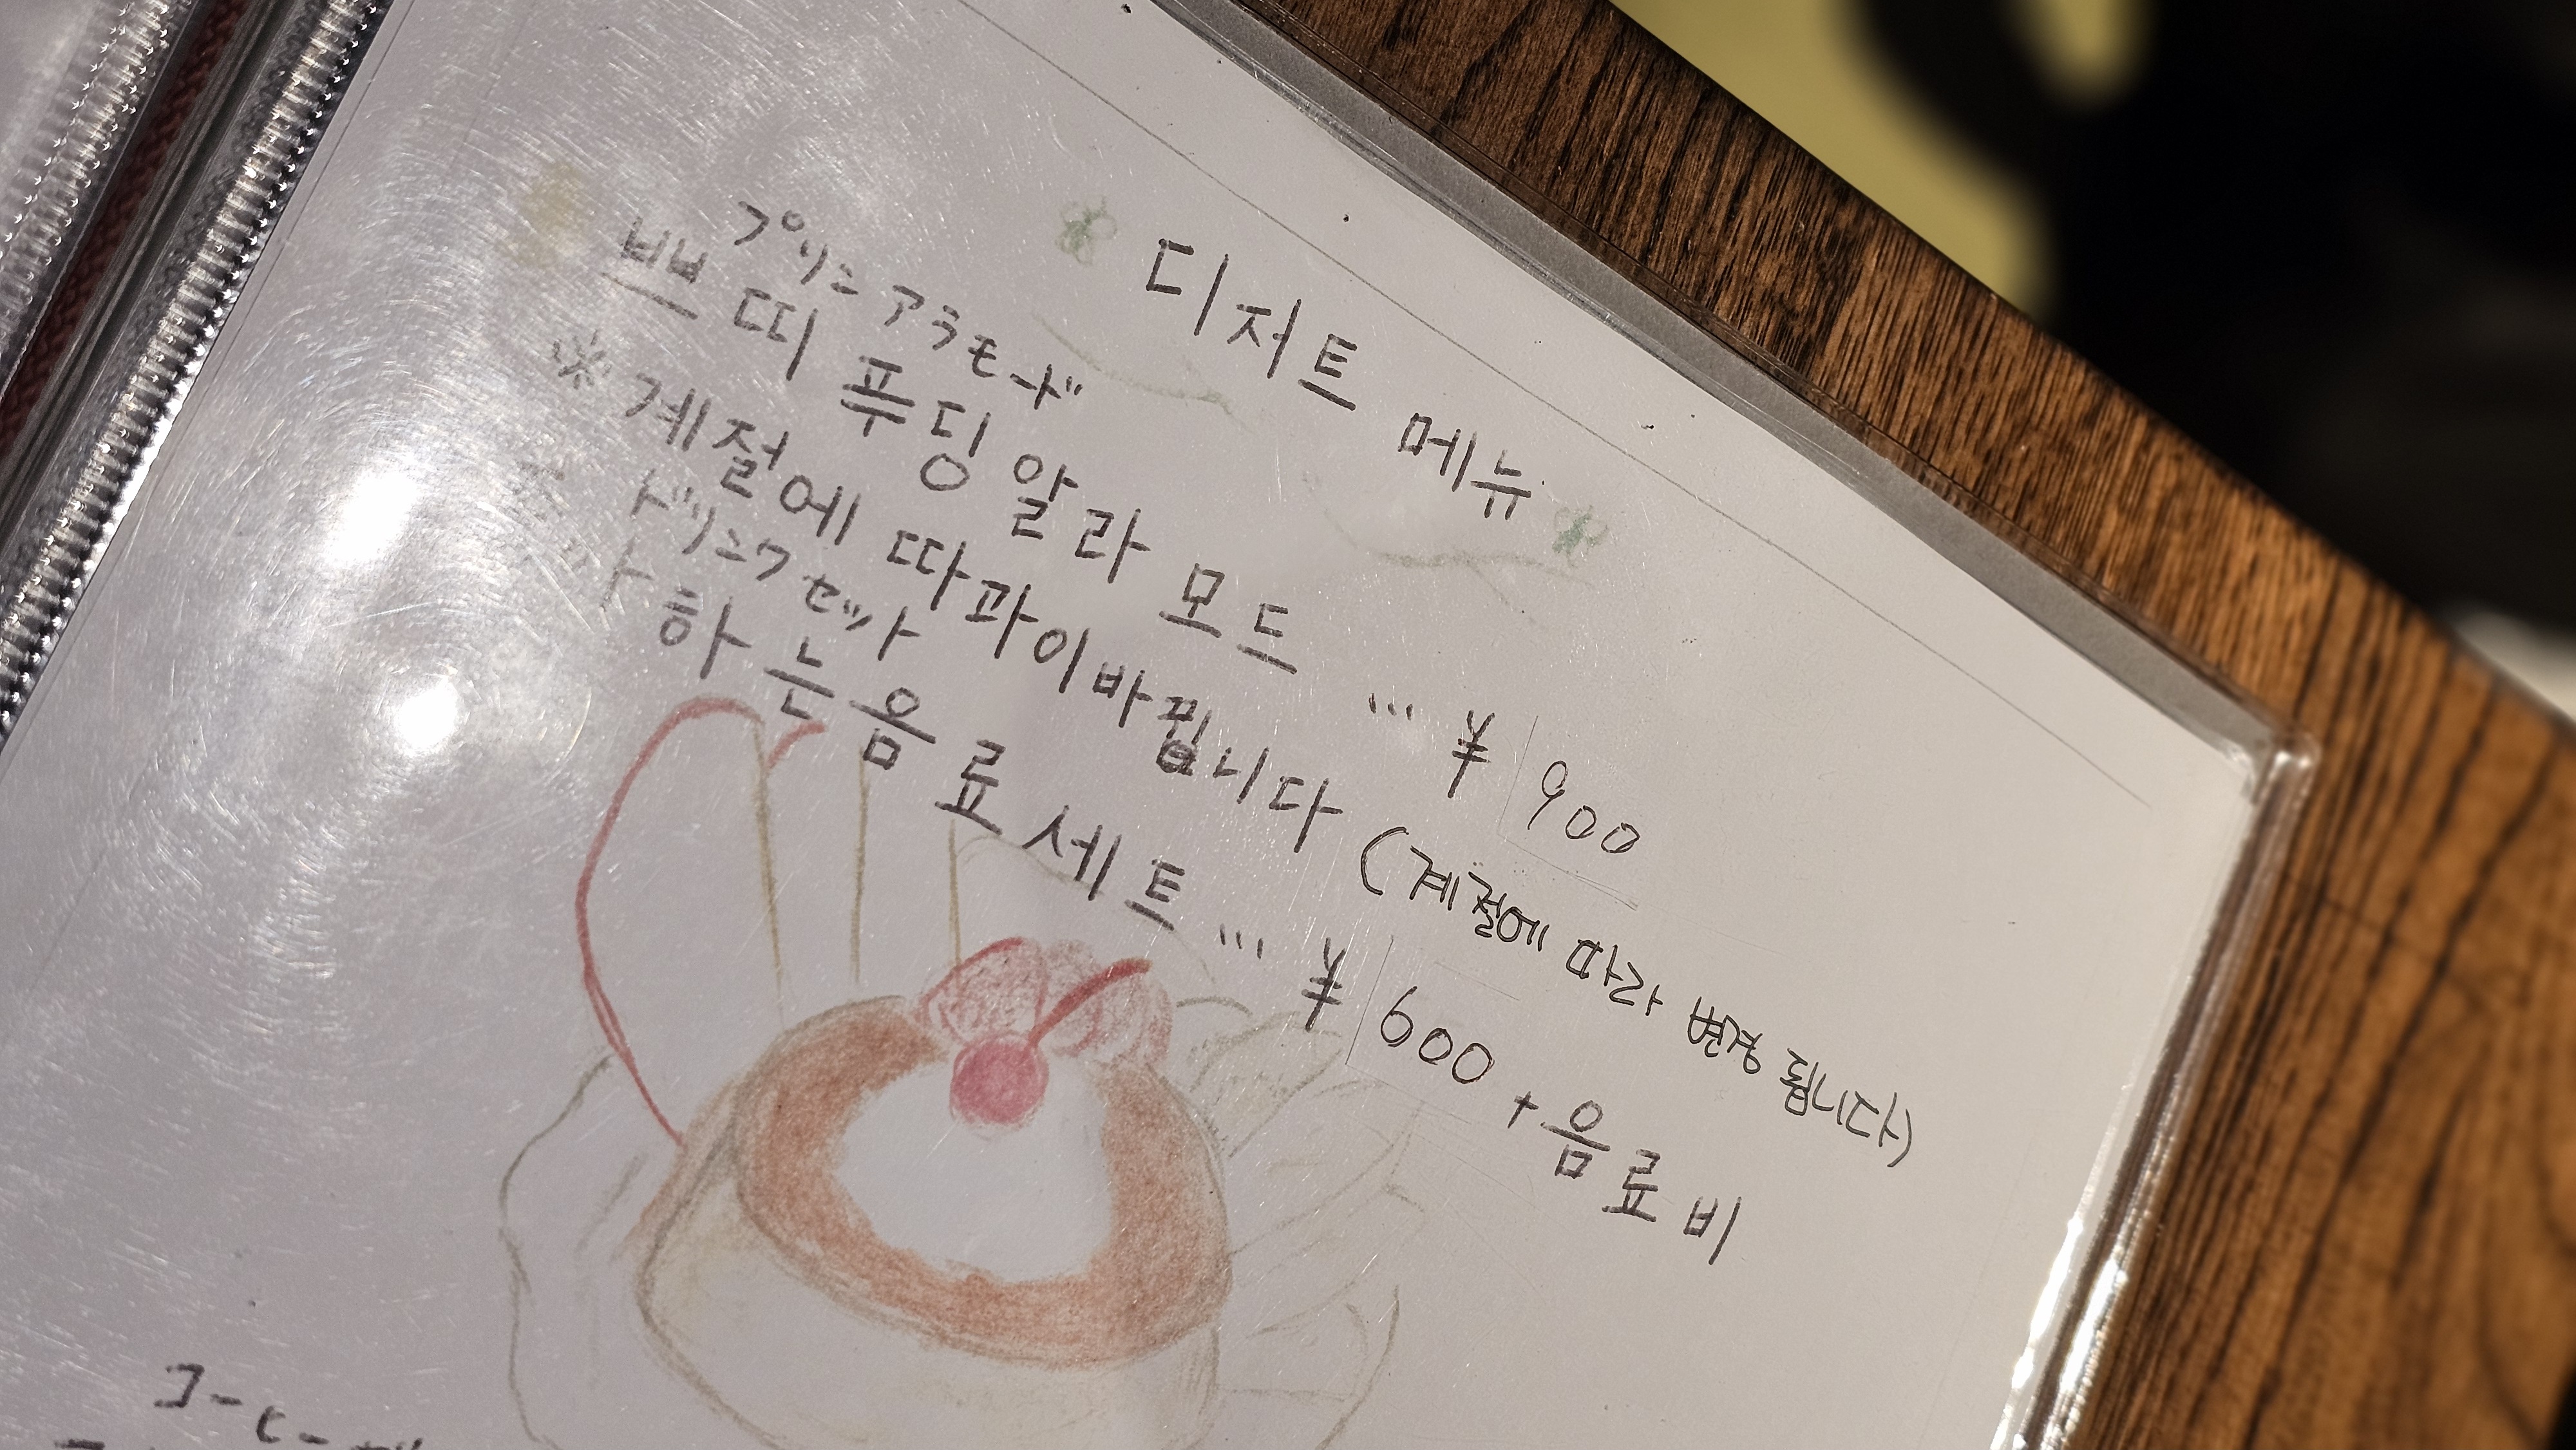 디저트 메뉴
プリンアラモード
쁘띠 푸딩 알라 모드 … ¥ 900
※ 계절에 따과이바뀝니다 (계절에 따라 변경 됩니다)
ドリンクセット
하는음료세트 … ¥ 600 + 음료비
コーヒー